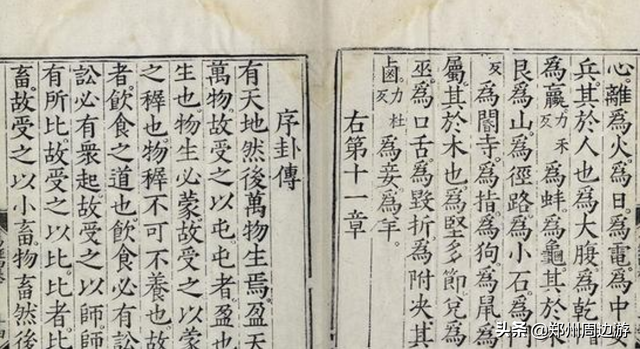 心離爲火爲日爲電爲中
兵其於人也爲大腹爲乾
爲蠃力禾反爲蚌爲龜其於
艮爲山爲徑路爲小石爲
反爲閽寺爲指爲狗爲鼠爲
屬其於木也爲堅多節兌爲
巫爲口舌爲毀折爲附决其
鹵力杜反爲妾爲羊
右第十一章
序卦傳
有天地然後萬物生焉盈天
萬物故受之以屯屯者盈也
生也物生必蒙故受之以蒙
之穉也物穉不可不養也故
者飲食之道也飲食必有訟
訟必有衆起故受之以師師
有所比故受之以比比者比
畜故受之以小畜物畜然後
头条@郑州周边游